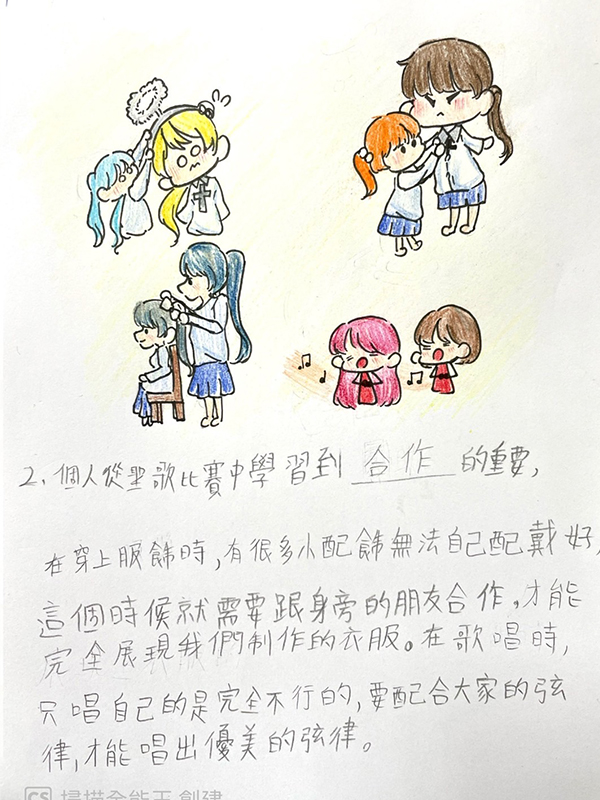 2. 個人從聖歌比賽中學習到 合作 的重要,
在穿上服飾時,有很多小配飾無法自己配戴好,
這個時候就需要跟身旁的朋友合作,才能
完全展現我們制作的衣服。在歌唱時,
只唱自己的是完全不行的,要配合大家的弦
律,才能唱出優美的弦律。
CS 掃描全能王 創建